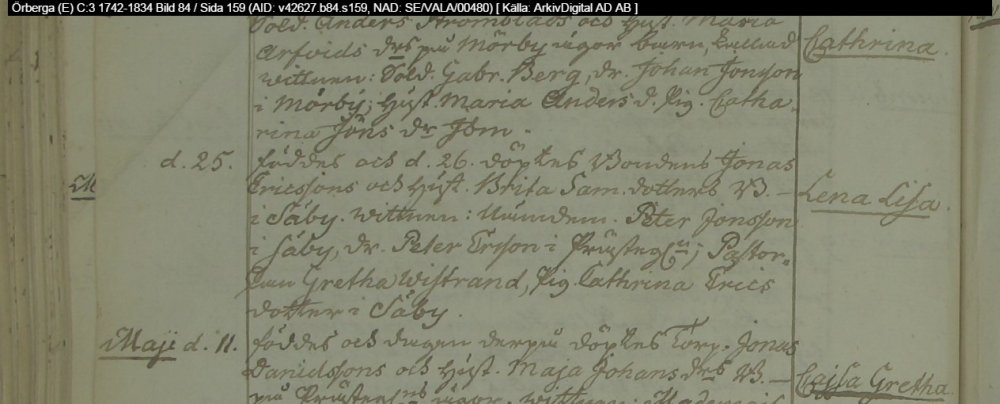 Örberga (E) C:3 1742-1834 Bild 84 / Sida 159 (AID: v42627.b84.s159, NAD: SE/VALA/00480) [ Källa: ArkivDigital AD AB ]
Sold. Anders Strömblads och Hust. Maria
Arfvids drs på Mörby ägor barn,
Cathrina.
wittnen: Sold. Gabr. Berg, dr. Johan Jonsson
i Mörby; Hust. Maria Anders d. Pig. Catha-
rina Jöns dr Ibm.
d. 25. föddes och d. 26. döptes Bondens Jonas
Ericssons och Hust. Brita Sam. dotters B.
Lena Lisa.
i Säby. wittnen: Nämndem. Peter Jonsson
i Säby, dr. Peter Ersson i ; Pastor-
Gretha Wistrand, Pig. Cathrina Erics
dotter i Säby.
Maji d. 11. föddes och dagen derpå döptes Torp. Jonas
Danielssons och Hust. Maja Johans drs B.
Cajsa Gretha
på ägor. wittnen: